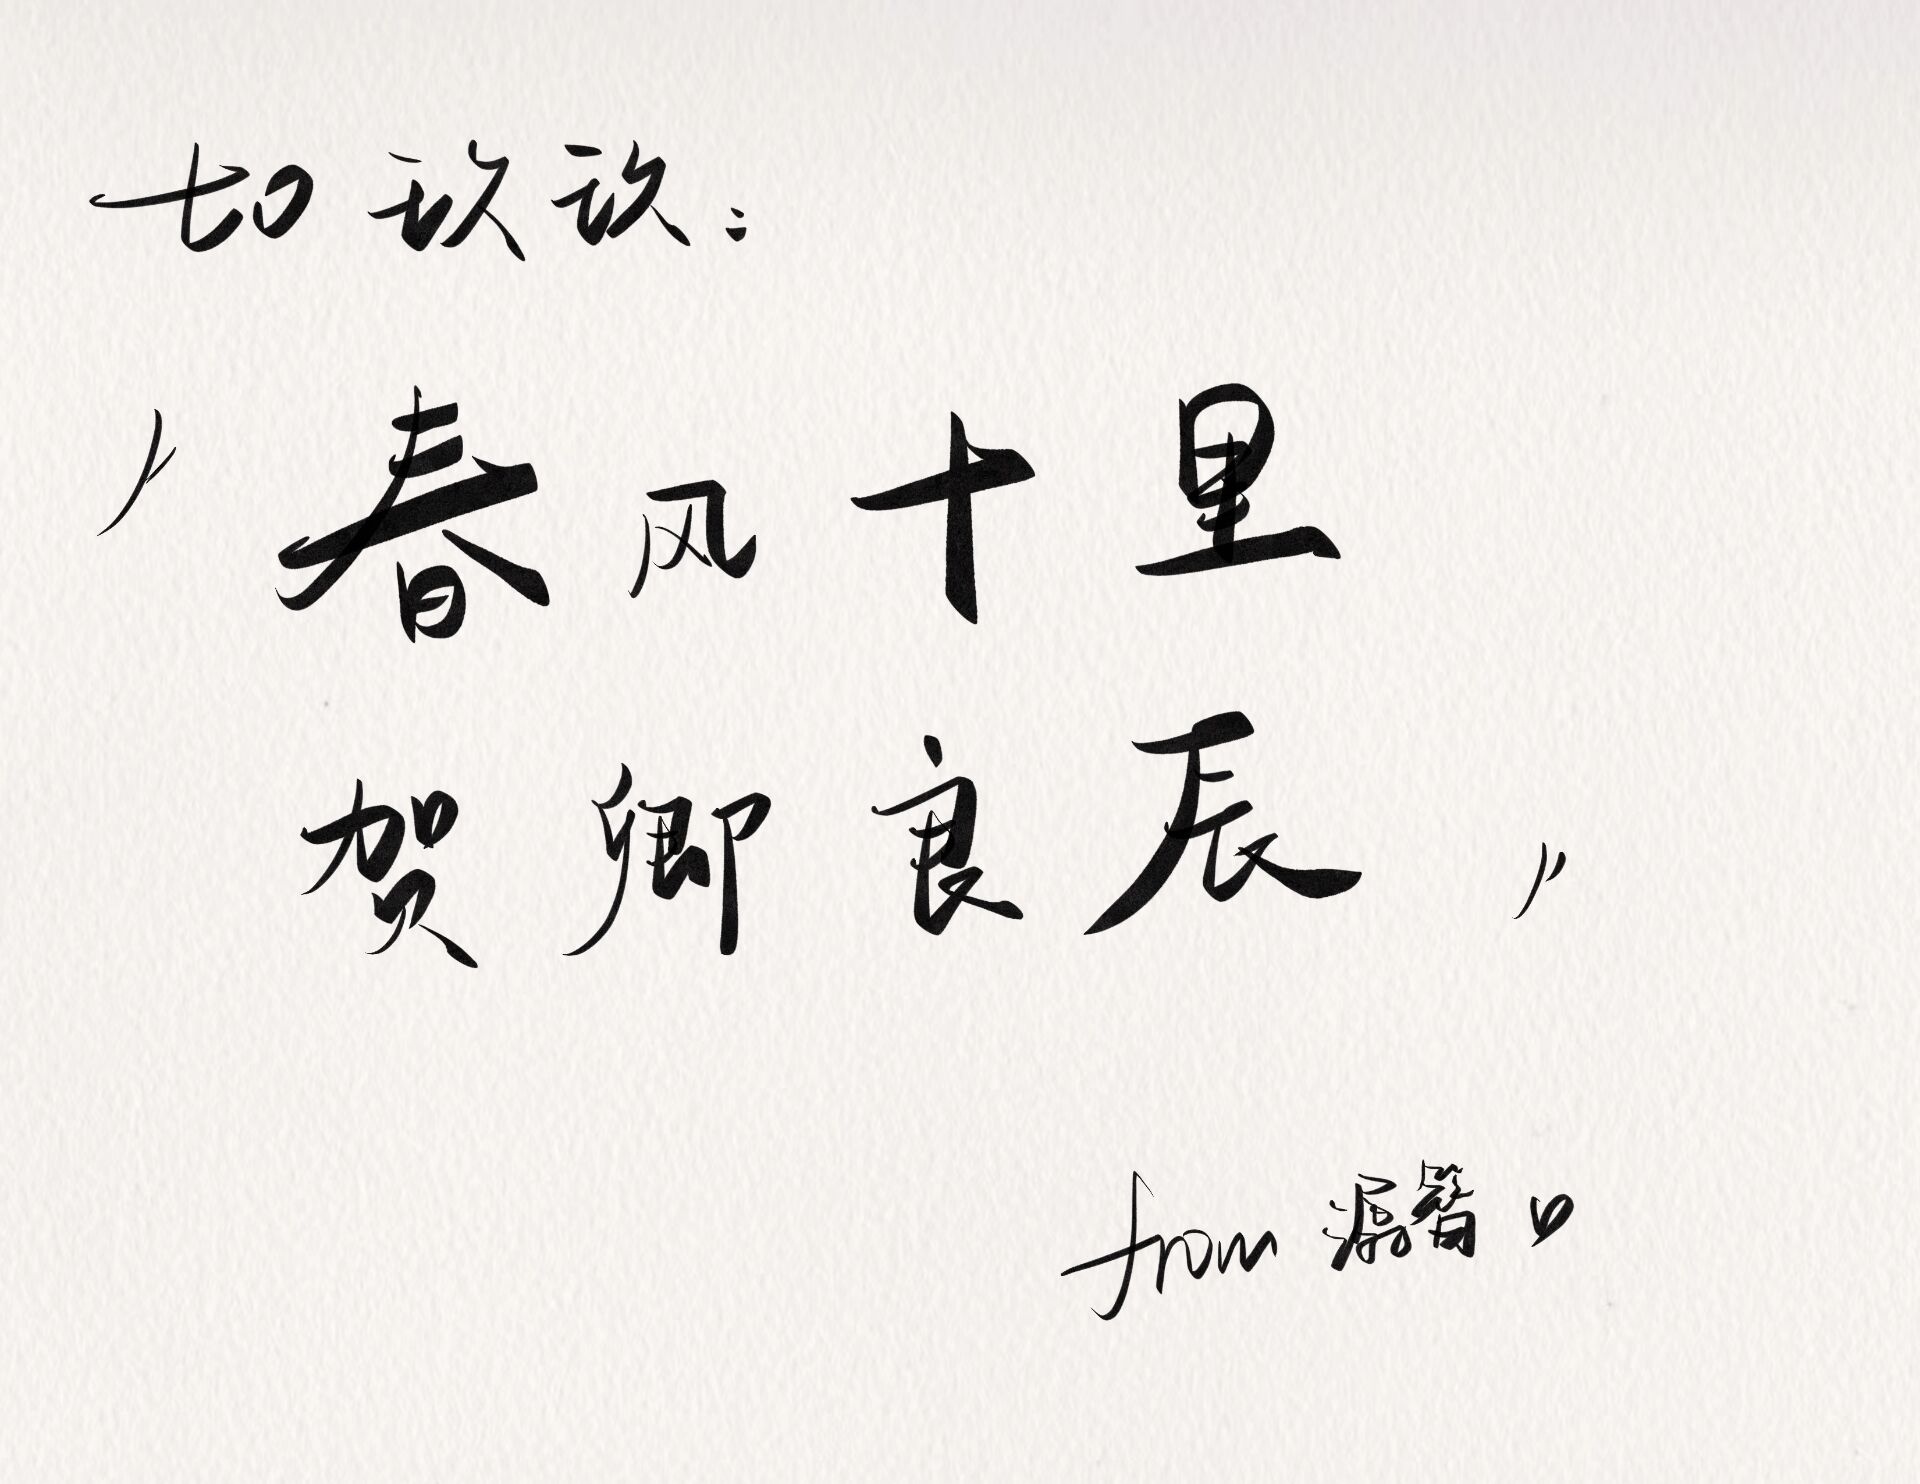 切玖玖：
"春风十里
贺卿良辰"
from 潺箐